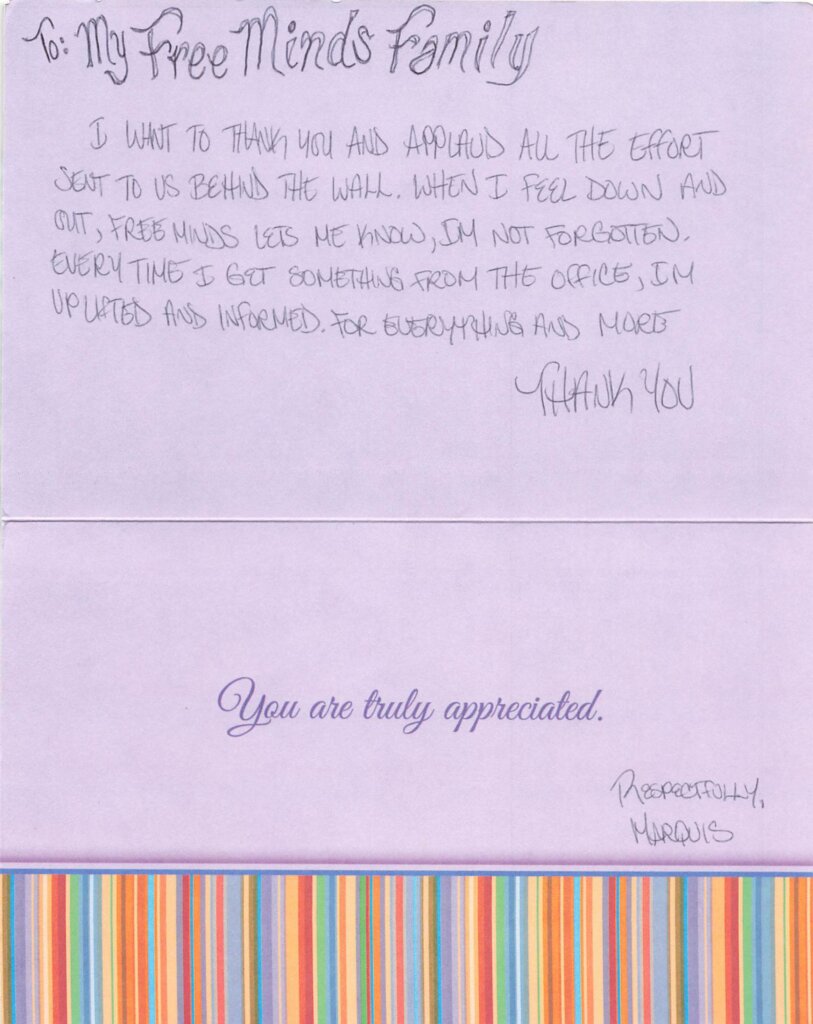 To: My Free Minds Family
I WANT TO THANK YOU AND APPLAUD ALL THE EFFORT
SENT TO US BEHIND THE WALL. WHEN I FEEL DOWN AND
OUT, FREE MINDS LETS ME KNOW, I'M NOT FORGOTTEN.
EVERY TIME I GET SOMETHING FROM THE OFFICE, I'M
UPLIFTED AND INFORMED. FOR EVERYTHING AND MORE
THANK YOU
You are truly appreciated.
RESPECTFULLY,
MARQUIS